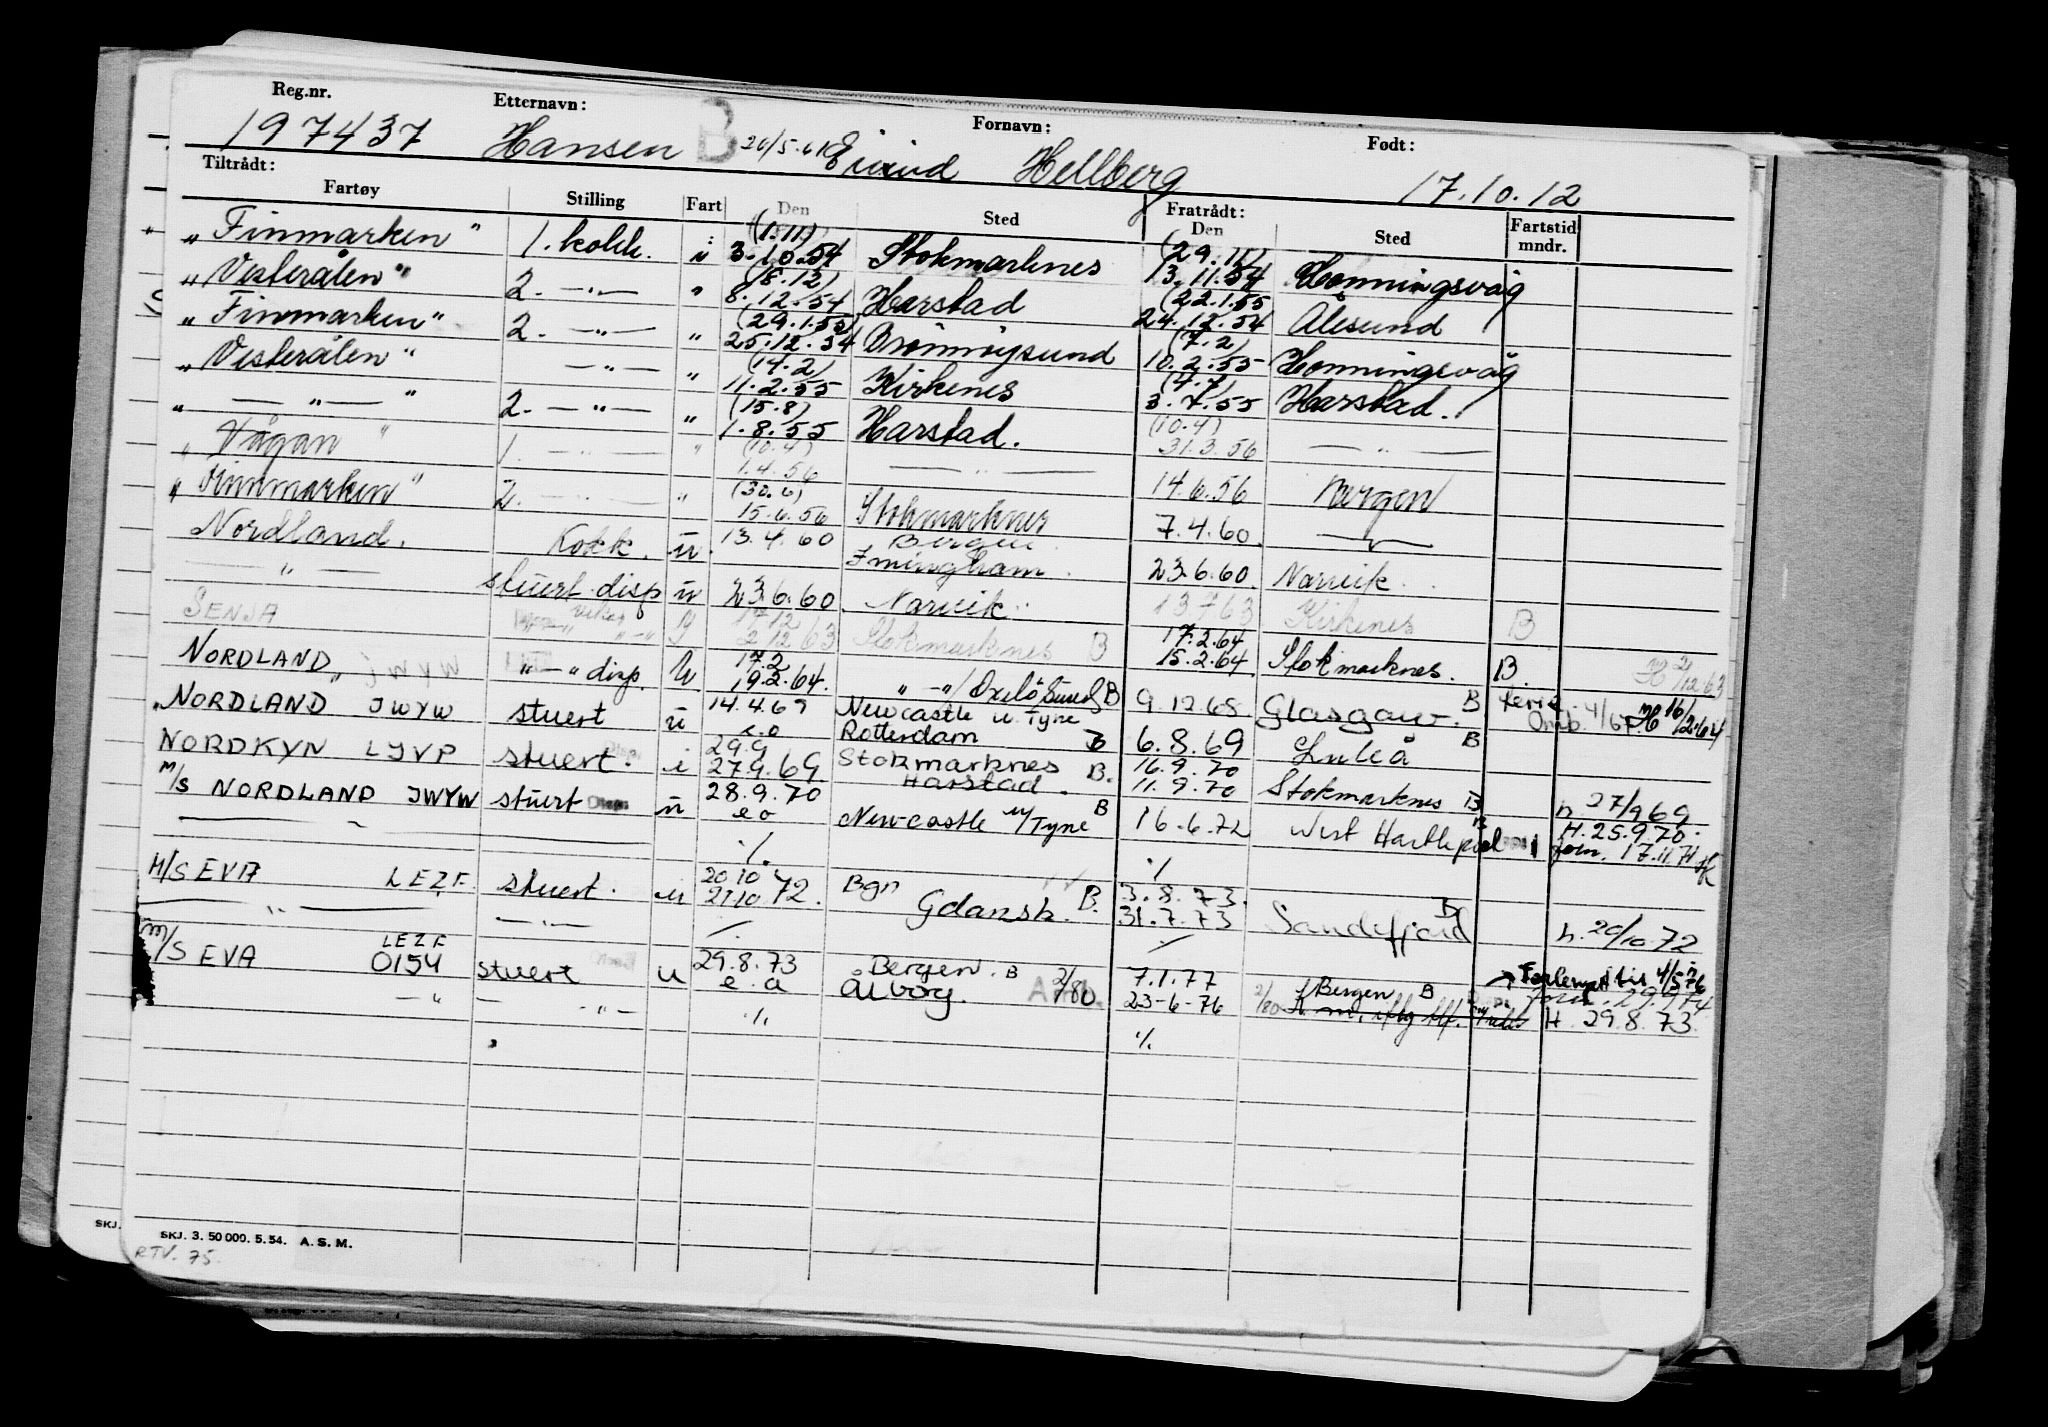 Reg.nr. Etternavn: Fornavn: Født:
197437 Hansen B 26/5-61 Eivind Hellberg 17.10.12
Tiltrådt: Fratrådt:
Fartøy Stilling Fart Den Sted Den Sted Fartstid mndr.
(1.11) (29.11)
„ Finmarken " 1. kokk. i 3.10.54 Stokmarknes 13.11.54 Honningsvåg
(18.12) (22.1.55
„ Vesterålen " 2. — " — " 8.12.54 Harstad 24.12.54 Ålesund
(29.1.55) (7.2)
„ Finmarken " 2. — " — " 25.12.54 Brønnøysund 10.2.55 Honningsvåg
(14.2) (4.7)
„ Vesterålen " — " — " 11.2.55 Kirkenes 3.7.55 Harstad.
(15.8) (10.4)
„ — " — " 2. — " — " 1.8.55 Harstad. 31.3.56 — " —
(10.4)
„ Vågan " 1. — " — " 1.4.56 — " — 14.6.56 Bergen
(30.6)
„ Finnmarken " 2. — " — " 15.6.56 Stokmarknes 7.4.60. — " —
Nordland. Kokk. u. 13.4.60 Bergen Imingham. 23.6.60 Narvik.
— " — stuert disp u 23.6.60. Narvik. 13 7 63 Kirkenes B
SENJA 17 12 17.2.64
2 12 63 Stokmarknes B 15.2.64 Stokmarknes. B. H 2/12.63
NORDLAND „ JWYW " — " disp. u 17.2 19.2.64. " — " / Oxelösund B 9.12 68. Glasgow. B ferie 4/67. H 16/2.64
„ NORDLAND JWYW stuert u 14.4.69 Newcastle u. Tyne
e.o Rotterdam B 6.8.69 Luleå B
NORDKYN LJVP stuert. i 29.9 Stokmarknes 16.9.70
27.9.69 Harstad. B. 11.9.70 Stokmarknes B h 27/9 69
m/s NORDLAND JWYW stuert u 28.9.70
e o Newcastle u/Tyne B 16.6.72 West Hartlepool H. 25.9.70.
— " — ./. ./. forn. 17.11.71
M/S EVA LEZF. stuert. u 20.10 Bgn 3.8.73.
21.10.72. Gdansk. B. 31.7.73 Sandefjord B h. 20/10.72
— " — — " — ./. ./.
m/s EVA LEZF
0154 stuert u 29.8.73 Bergen. B 2/80 7.1.77 Bergen B → Forlenget til 4/5 76
— " — — " — e.o Ålborg. 23-6-76 2/80 forn. 29.9.74
./. H. 29.8.73.
./.
SKJ. SKJ. 3. 50 000. 5.54. A. S. M.
RTV. 75.